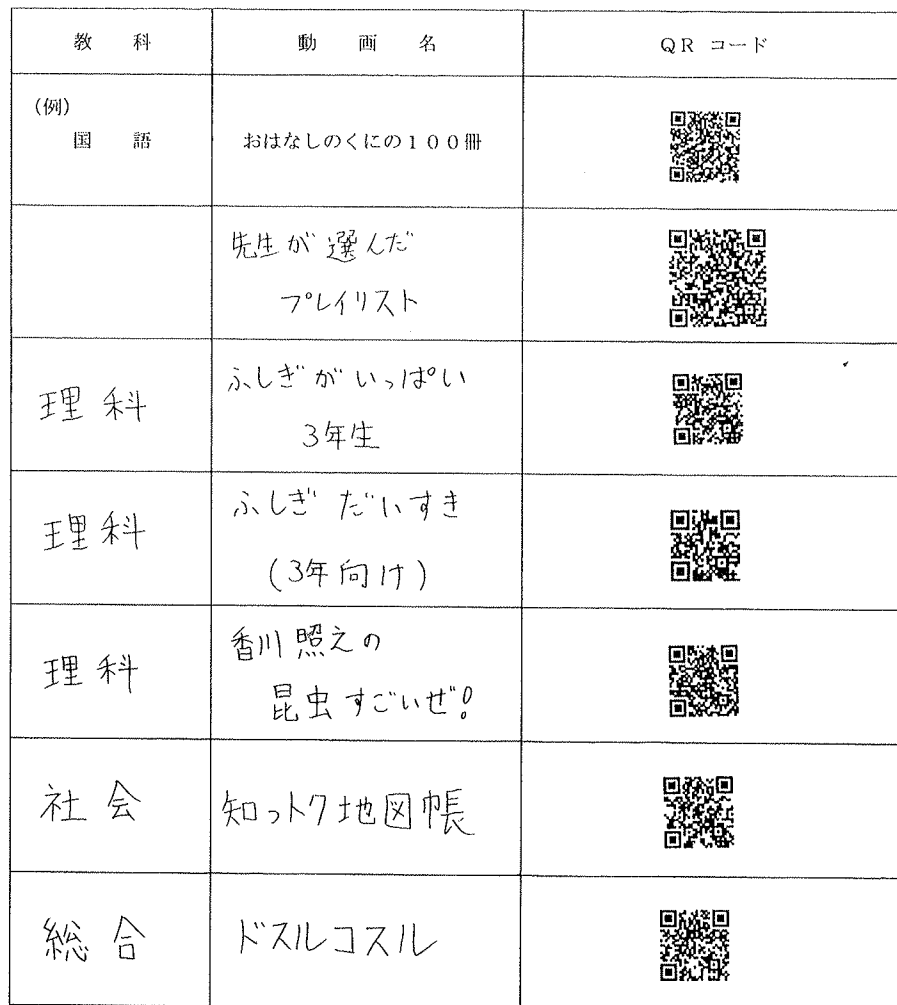 教科 動画名 QRコード
(例)
国語 おはなしのくにの100冊
先生が選んだ
プレイリスト
理科 ふしぎがいっぱい
3年生
理科 ふしぎだいすき
(3年向け)
理科 香川照之の
昆虫すごいぜ!
社会 知っトク地図帳
総合 ドスルコスル